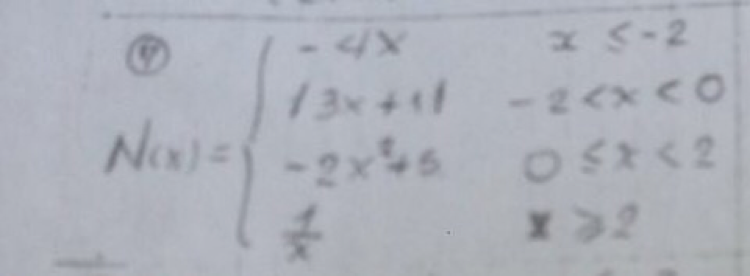 ④
N(x) = { -4x    x ≤ -2
|3x+1|    -2<x<0
-2x²+5    0≤x<2
1/x    x ≥2